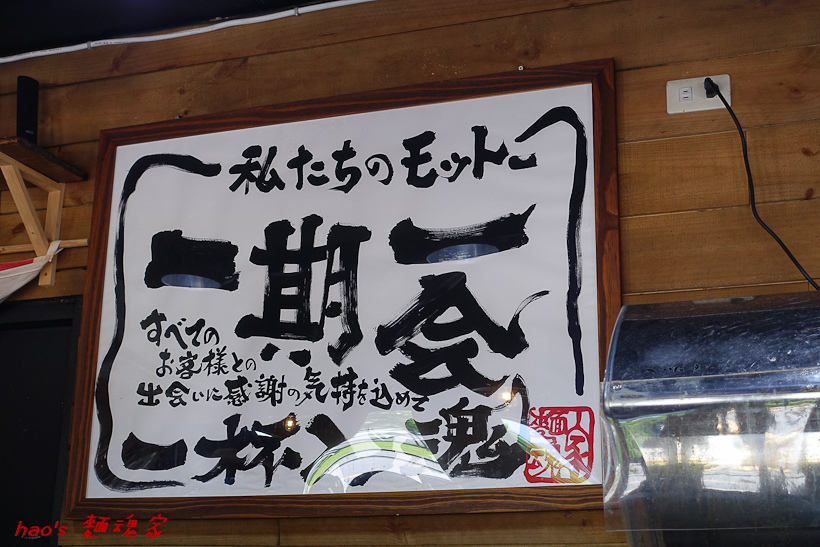 私たちのモットー
一期一会
すべての
お客様との
出会いに感謝の気持を込めて
一杯入魂
hao's 麵魂家